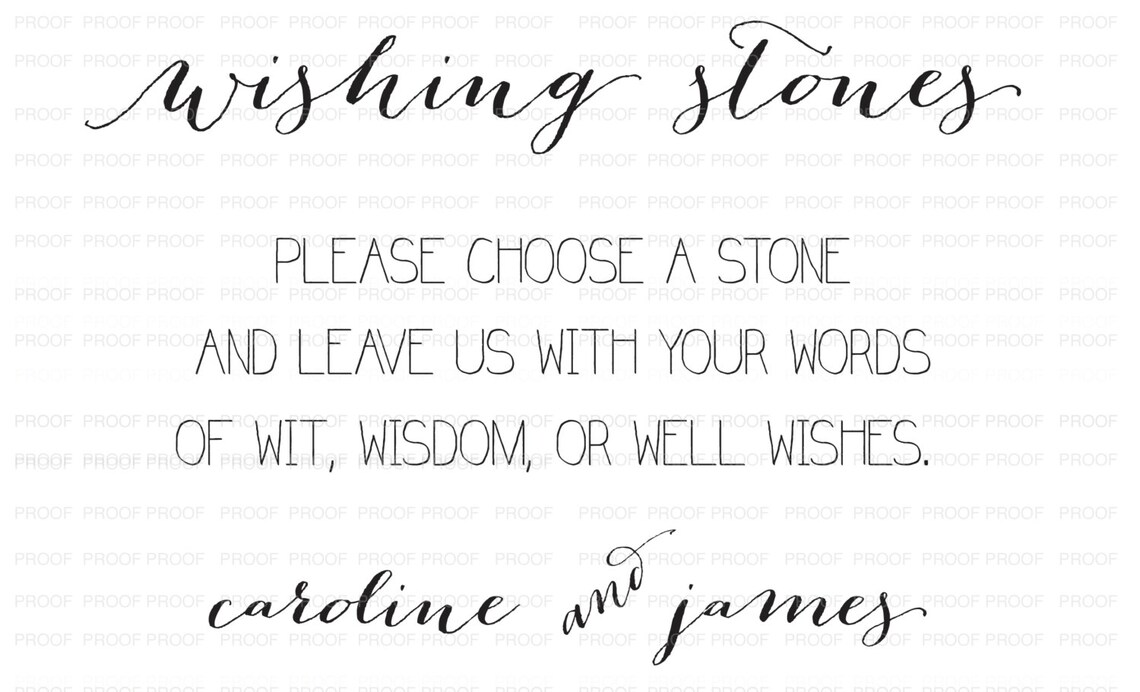 PROOF PROOF PROOF PROOF PROOF PROOF PROOF PROOF PROOF PROOF PROOF PROOF PROOF PROOF PROOF
wishing stones
PLEASE CHOOSE A STONE
AND LEAVE US WITH YOUR WORDS
OF WIT, WISDOM, OR WELL WISHES.
caroline and james